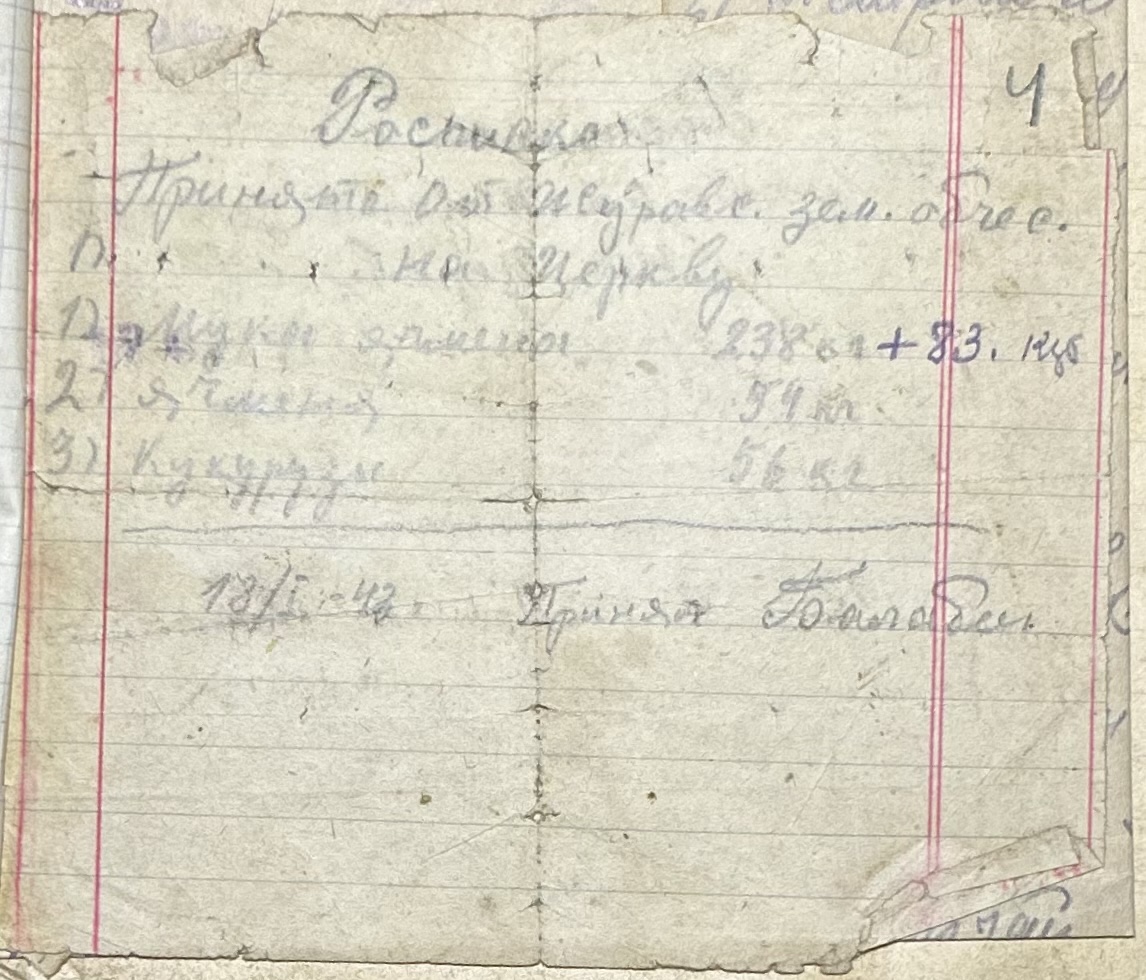 4
Росписка
Принято от Журавс. зем. общес.
на Церкву
1) Муки ячменя 238 кг + 83. куб
2) ячменя 59 кг.
3) Кукурузы 56 кг
18/I - 42. Принял Балабин